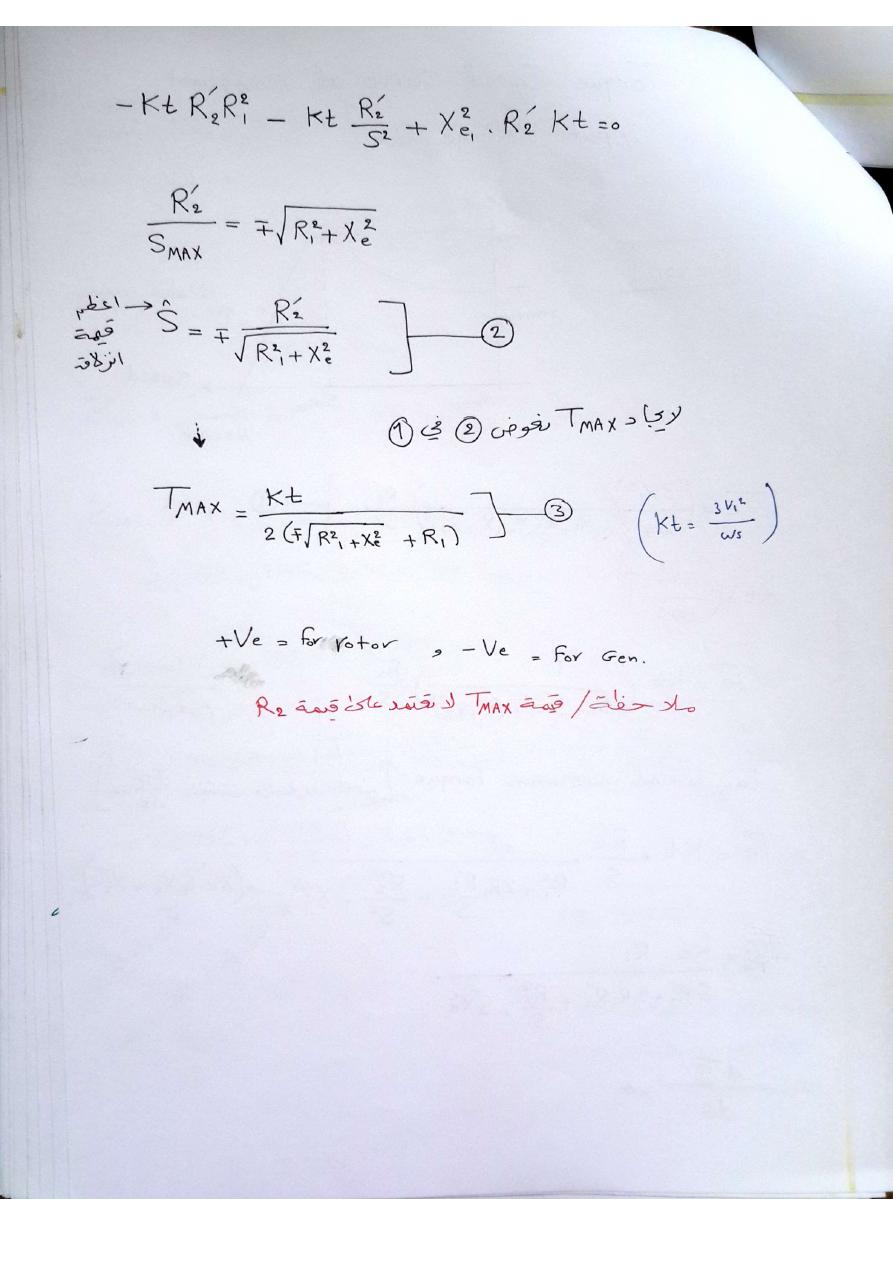 -Kt R₂′R₁² - Kt R₂′/S² + Xe₁² . R₂′ Kt = 0
R₂′/S_MAX = ∓√(R₁² + Xe²)
اعظم → Ŝ = ∓ R₂′/√(R₁² + Xe²) ] ②
قيمة
انزلاق
لايجاد T_MAX نعوض ② في ①
↓
T_MAX = Kt / 2(∓√(R²₁ + Xe²) + R₁) ] ③ (Kt = 3V₁²/ws)
+Ve = for rotor , -Ve = for Gen.
ملاحظة/ قيمة T_MAX لا تعتمد على قيمة R₂